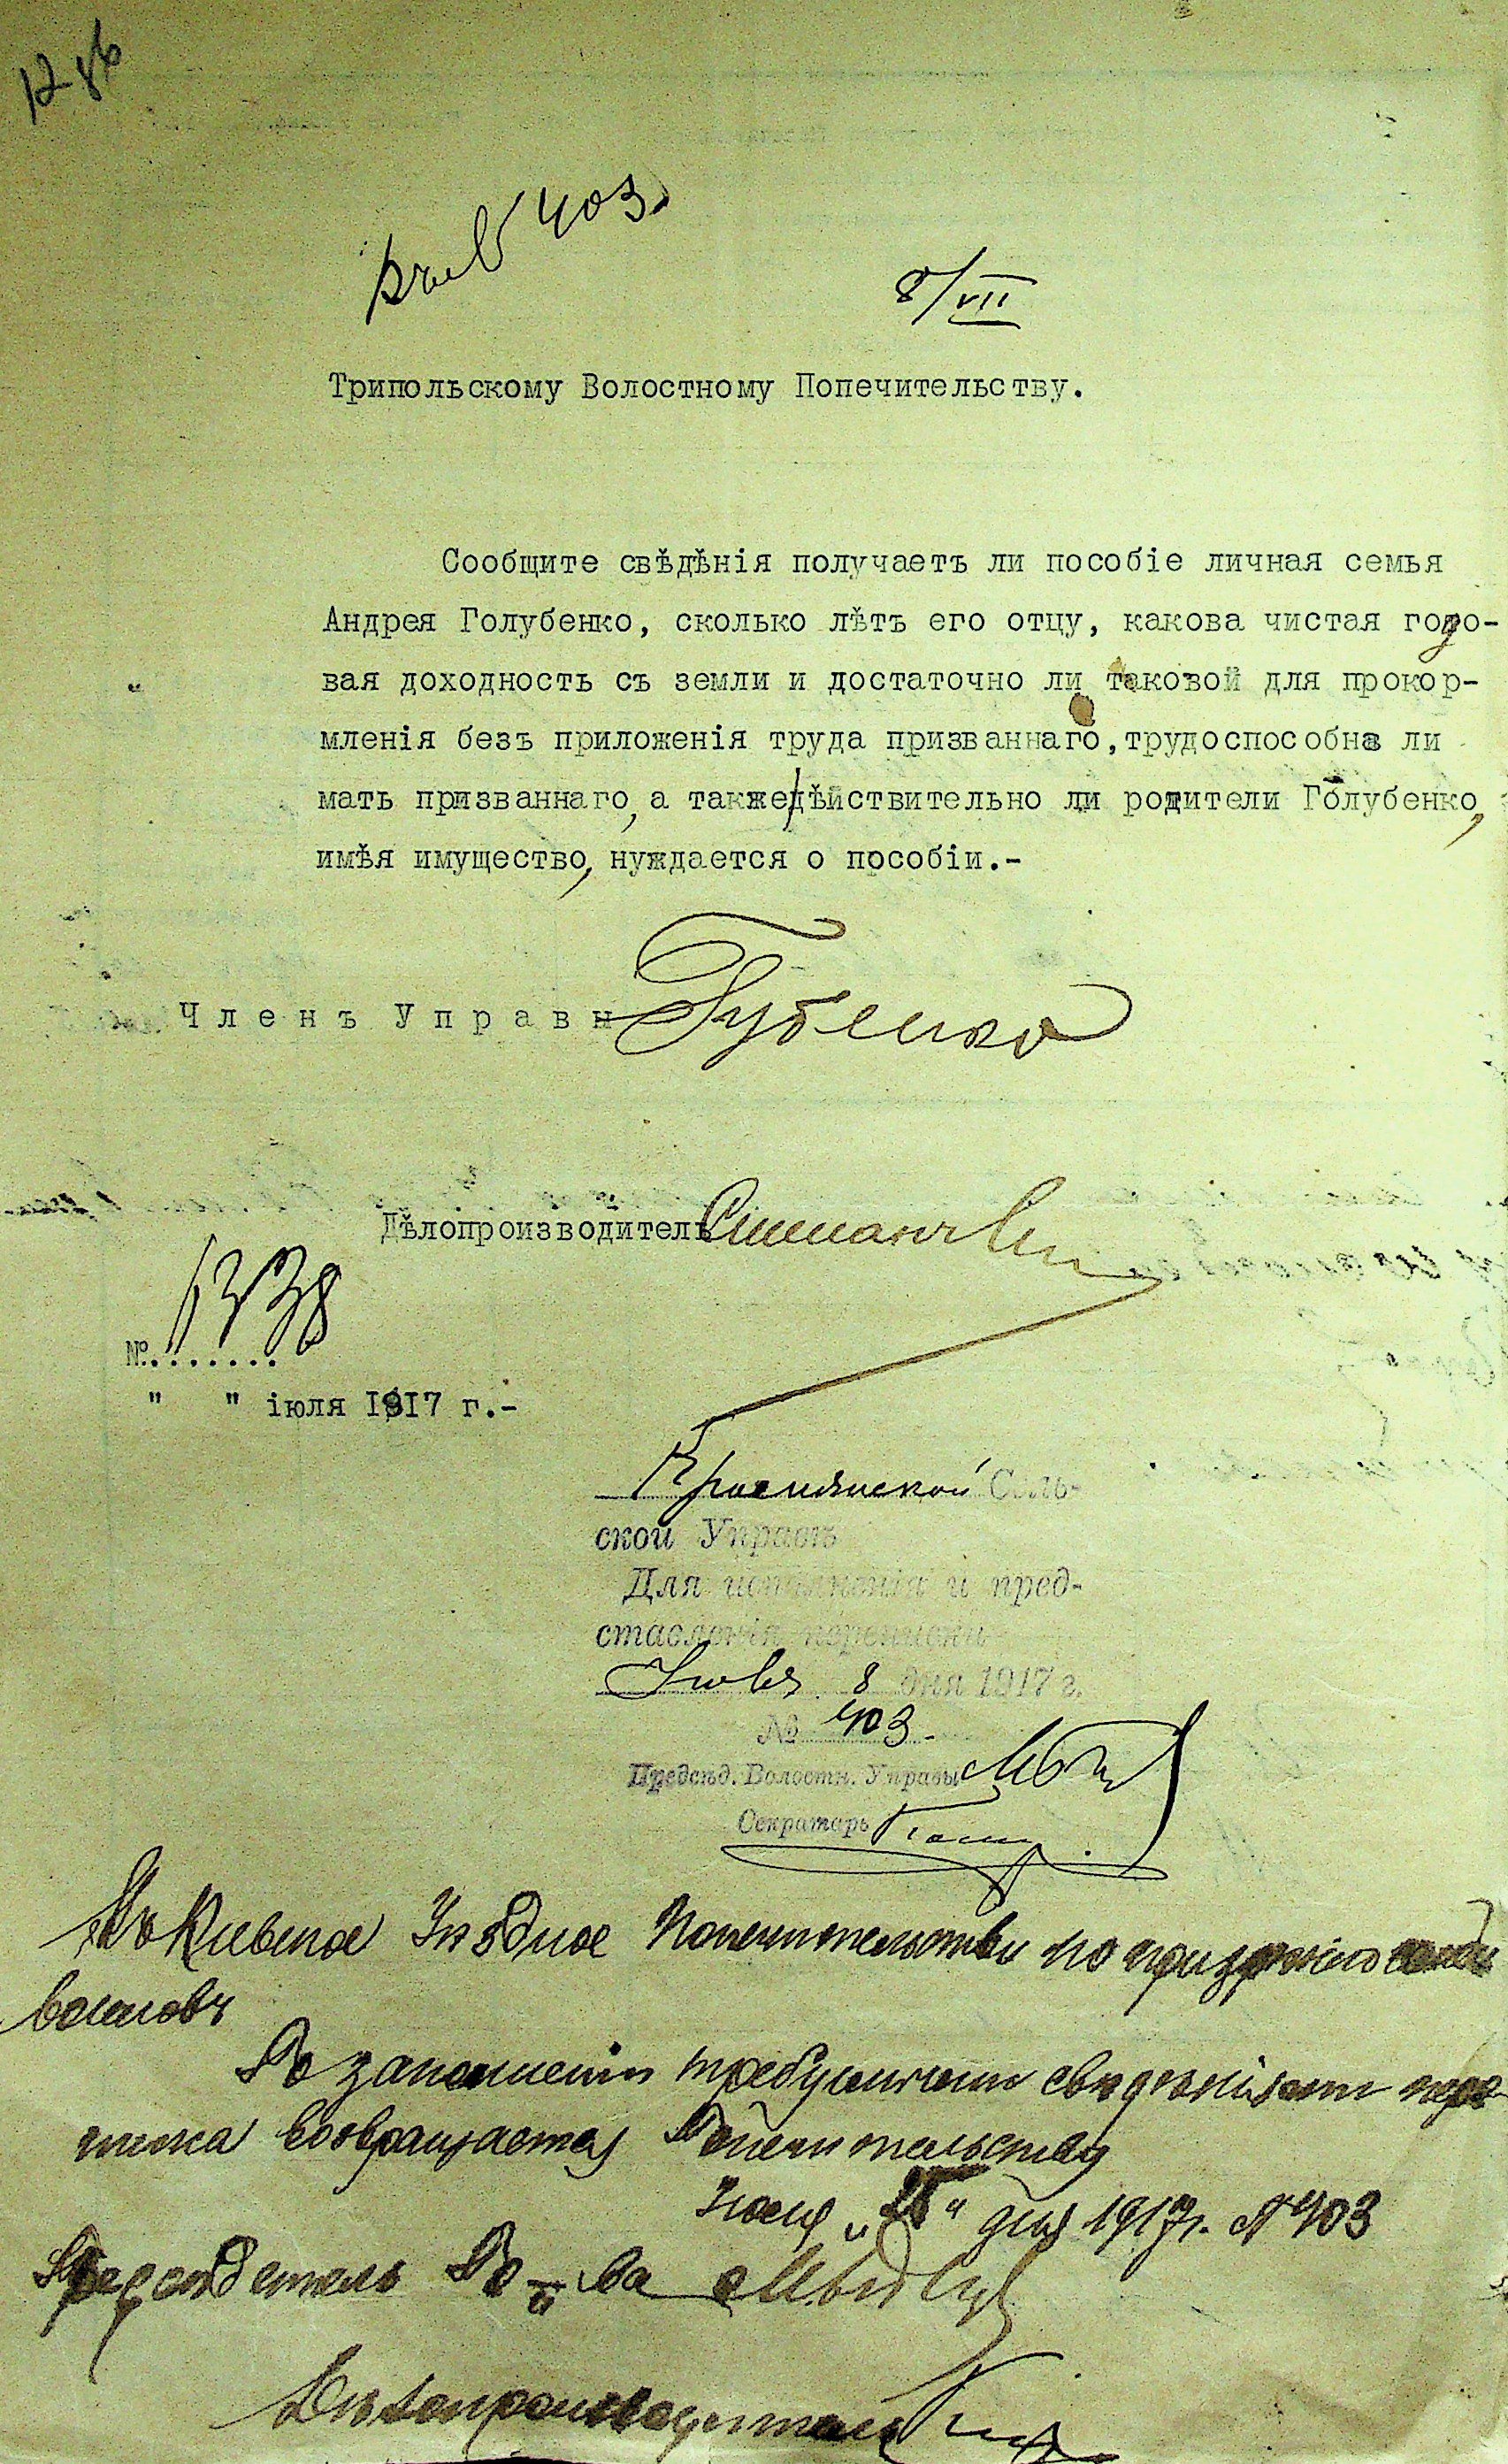 403.
8/VII
Трипольскому Волостному Попечительству.
Сообщите свѣдѣнія получаетъ ли пособіе личная семья
Андрея Голубенко, сколько лѣтъ его отцу, какова чистая годо-
вая доходность съ земли и достаточно ли таковой для прокор-
мленія безъ приложенія труда призваннаго, трудоспособна ли
мать призваннаго, а также дѣйствительно ли родители Голубенко,
имѣя имущество, нуждается о пособіи.-
Членъ Управы Губенко
Дѣлопроизводитель
№ 1338
" " іюля 1917 г.-
Сель-
ской Управѣ
Для исполненія и пред-
ставленія переписки
Іюля 8 дня 1917 г.
№ 403.
Предсѣд. Волостн. Управы
Секретарь
Въ Киевское Уѣздное Попечительство по призрѣнію
воиновъ
По заполненіи требуемыми свѣдѣніями пере-
писка возвращается Попечительству
Іюля дня 1917 г. № 403
Предсѣдатель По-ва
Дѣлопроизводитель